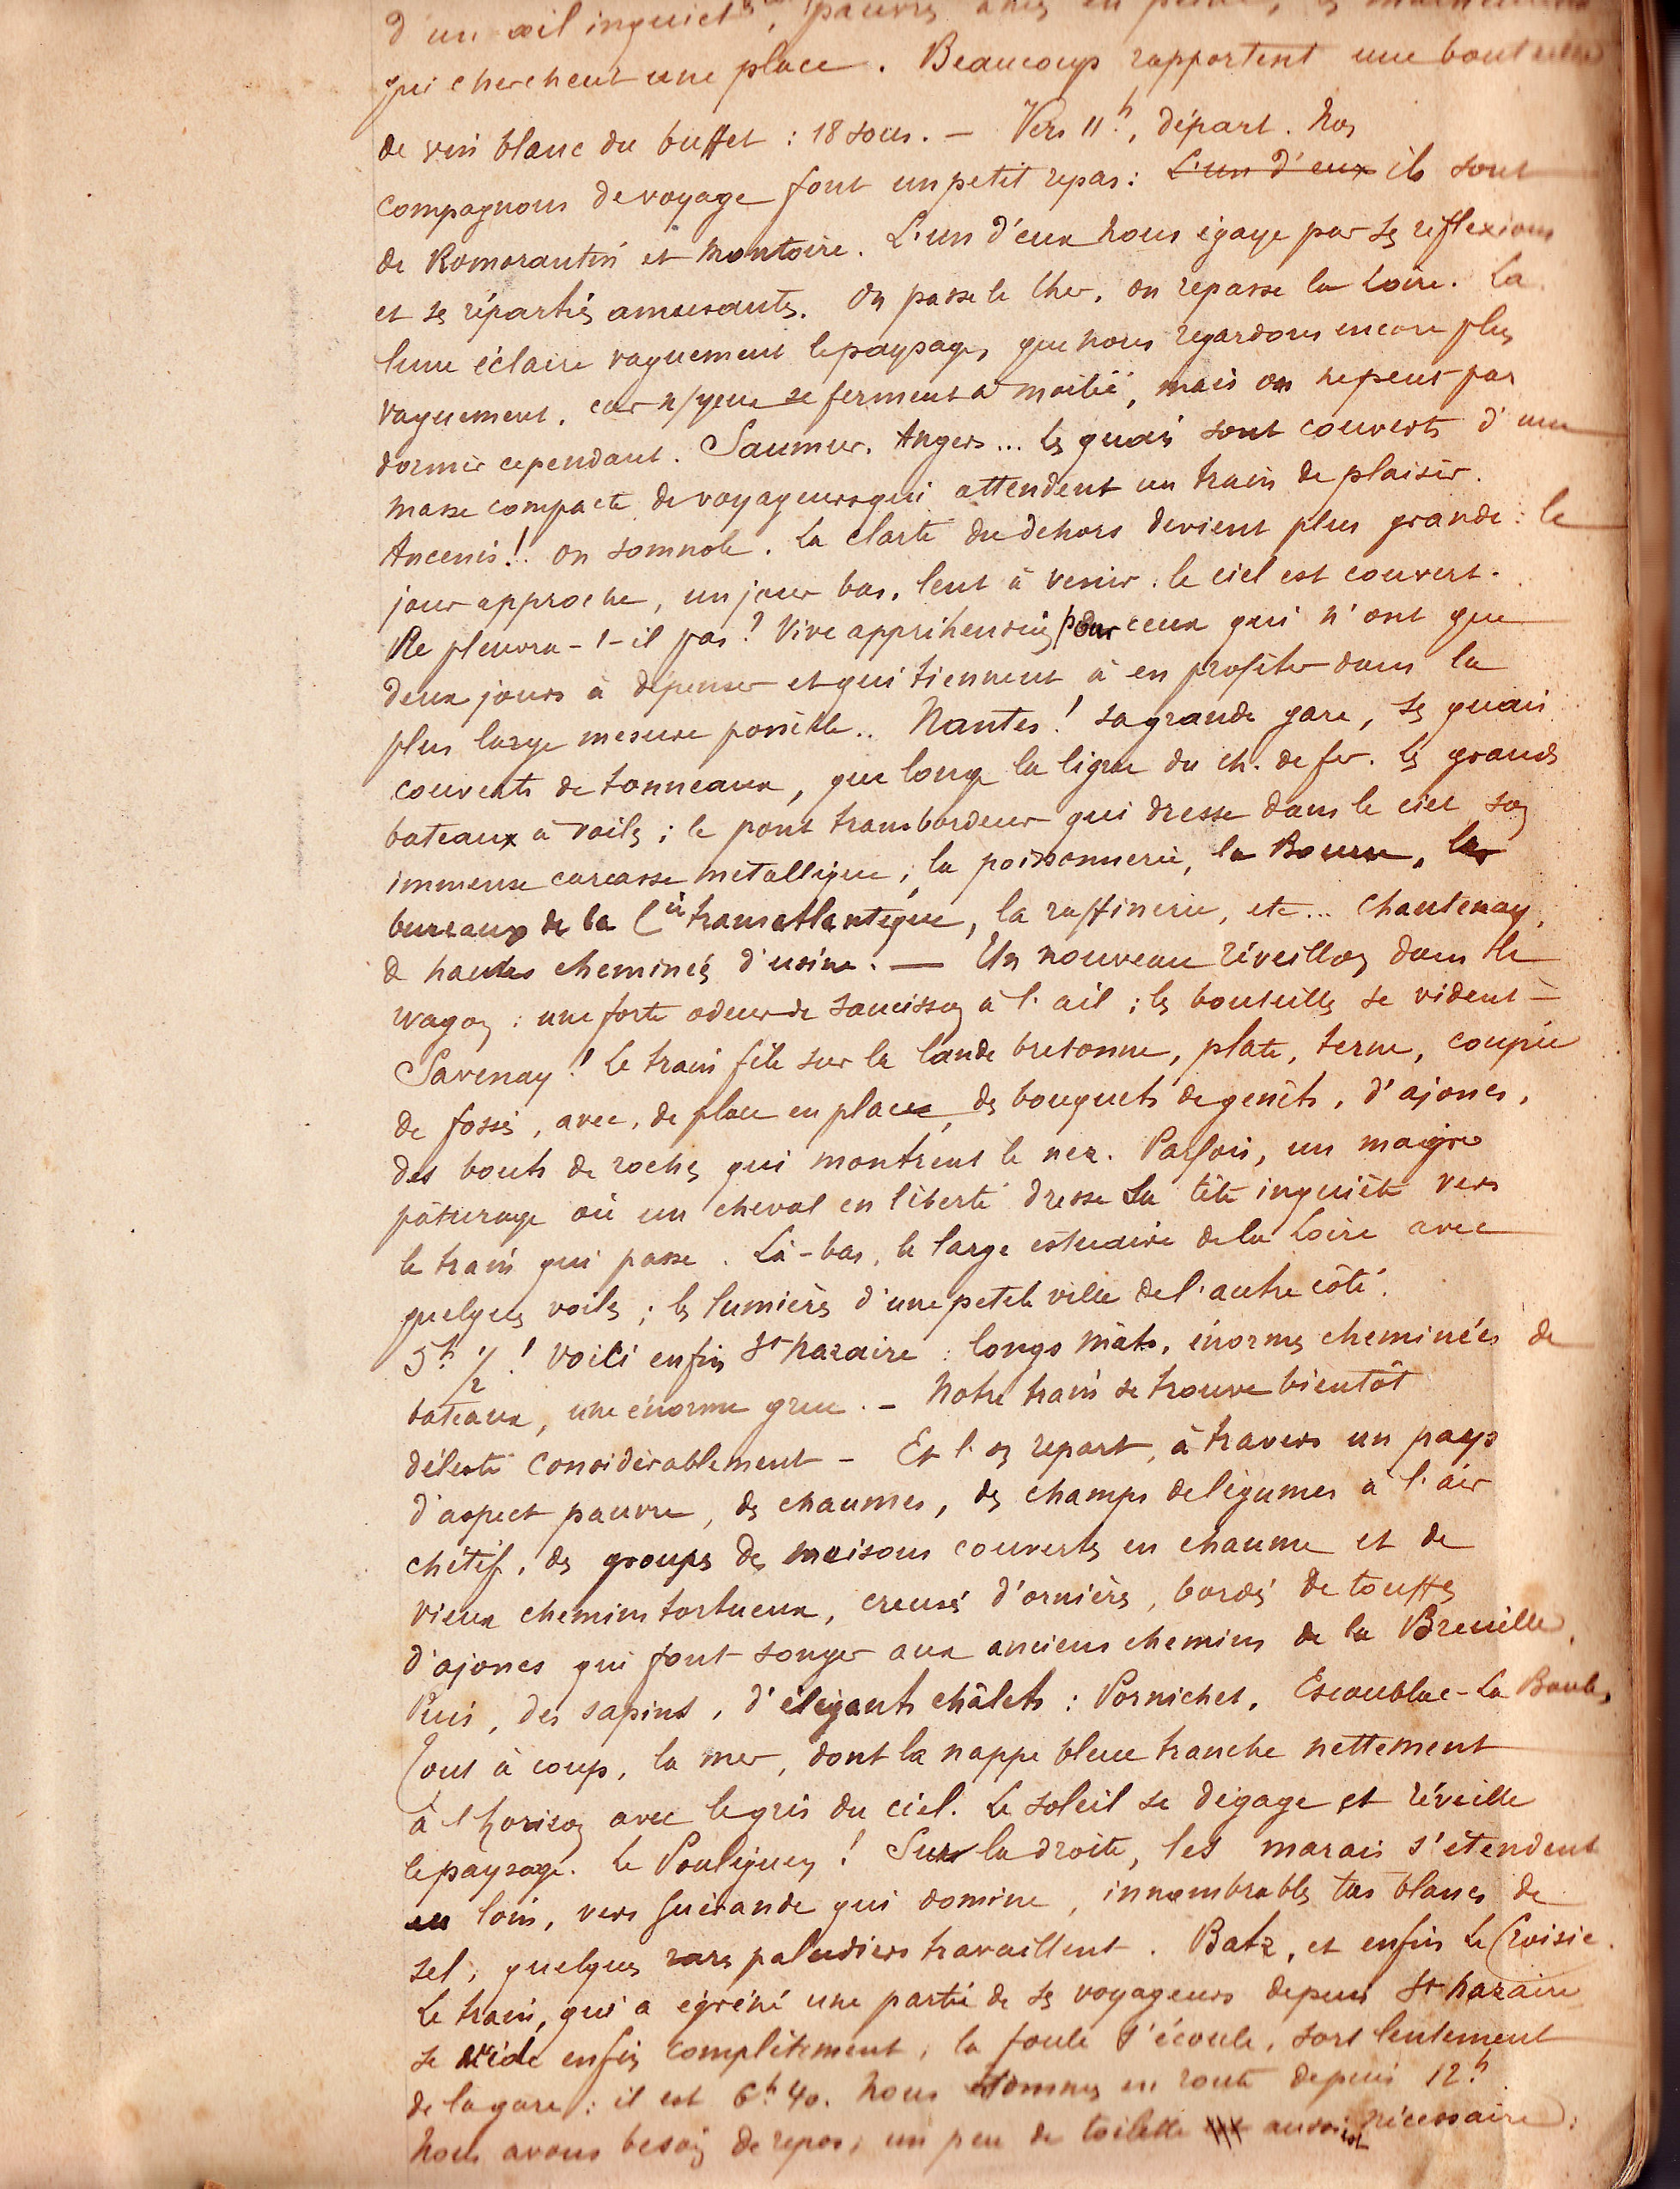 d'un œil inquiet, pauvres âmes en peine, les malheureux
qui cherchent une place. Beaucoup rapportent une bouteille
de vin blanc du buffet : 18 sous. — Vers 11h, départ. Nos
compagnons de voyage font un petit repas : L'un d'eux ils sont
de Romorantin et Montoire. L'un d'eux nous égaye par ses réflexions
et ses réparties amusantes. On passe le Cher, on repasse la Loire. La
lune éclaire vaguement le paysage, que nous regardons encore plus
vaguement, car n/ yeux se ferment à moitié, mais on ne peut pas
dormir cependant. Saumur. Angers... les quais sont couverts d'une
masse compacte de voyageurs qui attendent un train de plaisir.
Ancenis !.. on somnole. La clarté du dehors devient plus grande : le
jour approche, un jour bas, lent à venir : le ciel est couvert.
Ne pleuvra-t-il pas ? Vive appréhension pour ceux qui n'ont que
deux jours à dépenser et qui tiennent à en profiter dans la
plus large mesure possible.. Nantes ! sa grande gare, ses quais
couverts de tonneaux, que longe la ligne du ch. de fer. les grands
bateaux à voiles ; le pont transbordeur qui dresse dans le ciel son
immense carcasse métallique ; la poissonnerie, la Bourse, les
bureaux de la Cie transatlantique, la raffinerie, etc... Chantenay,
de hautes cheminées d'usine. — Un nouveau réveillon dans le
wagon : une forte odeur de saucisson à l'ail ; les bouteilles se vident —
Savenay ! Le train file sur la lande bretonne, plate, terne, coupée
de fossés, avec, de place en place, des bouquets de genêts, d'ajoncs,
des bouts de roches qui montrent le nez. Parfois, un maigre
pâturage où un cheval en liberté dresse sa tête inquiète vers
le train qui passe. Là-bas, le large estuaire de la Loire avec
quelques voiles ; les lumières d'une petite ville de l'autre côté.
5h 1/2 ! Voici enfin St Nazaire : longs mâts, énormes cheminées de
bateaux, une énorme grue. — Notre train se trouve bientôt
délesté considérablement — Et l'on repart, à travers un pays
d'aspect pauvre, des chaumes, des champs de légumes à l'air
chétif, des groupes de maisons couvertes en chaume et de
vieux chemins tortueux, creusés d'ornières, bordés de touffes
d'ajoncs qui font songer aux anciens chemins de la Breuille.
Puis, des sapins, d'élégants châlets : Pornichet, Escoublac-La Baule,
Tout à coup, la mer, dont la nappe bleue tranche nettement
à l'horizon avec le gris du ciel. Le soleil se dégage et réveille
le paysage. Le Pouliguen ! Sur la droite, les marais s'étendent
au loin, vers Guérande qui domine, innombrables tas blancs de
sel, quelques rares paludiers travaillent. Batz, et enfin Le Croisic.
Le train, qui a égréné une partie de ses voyageurs depuis St Nazaire
se vide enfin complètement ; la foule s'écoule, sort lentement
de la gare : il est 6h 40. Nous sommes en route depuis 12h
Nous avons besoin de repos ; un peu de toilette aussi est nécessaire :